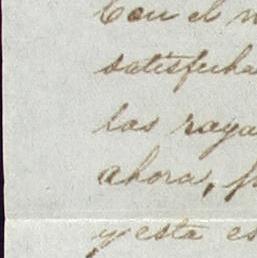 Con el
satisfecha
las raya
ahora, 
y esta es